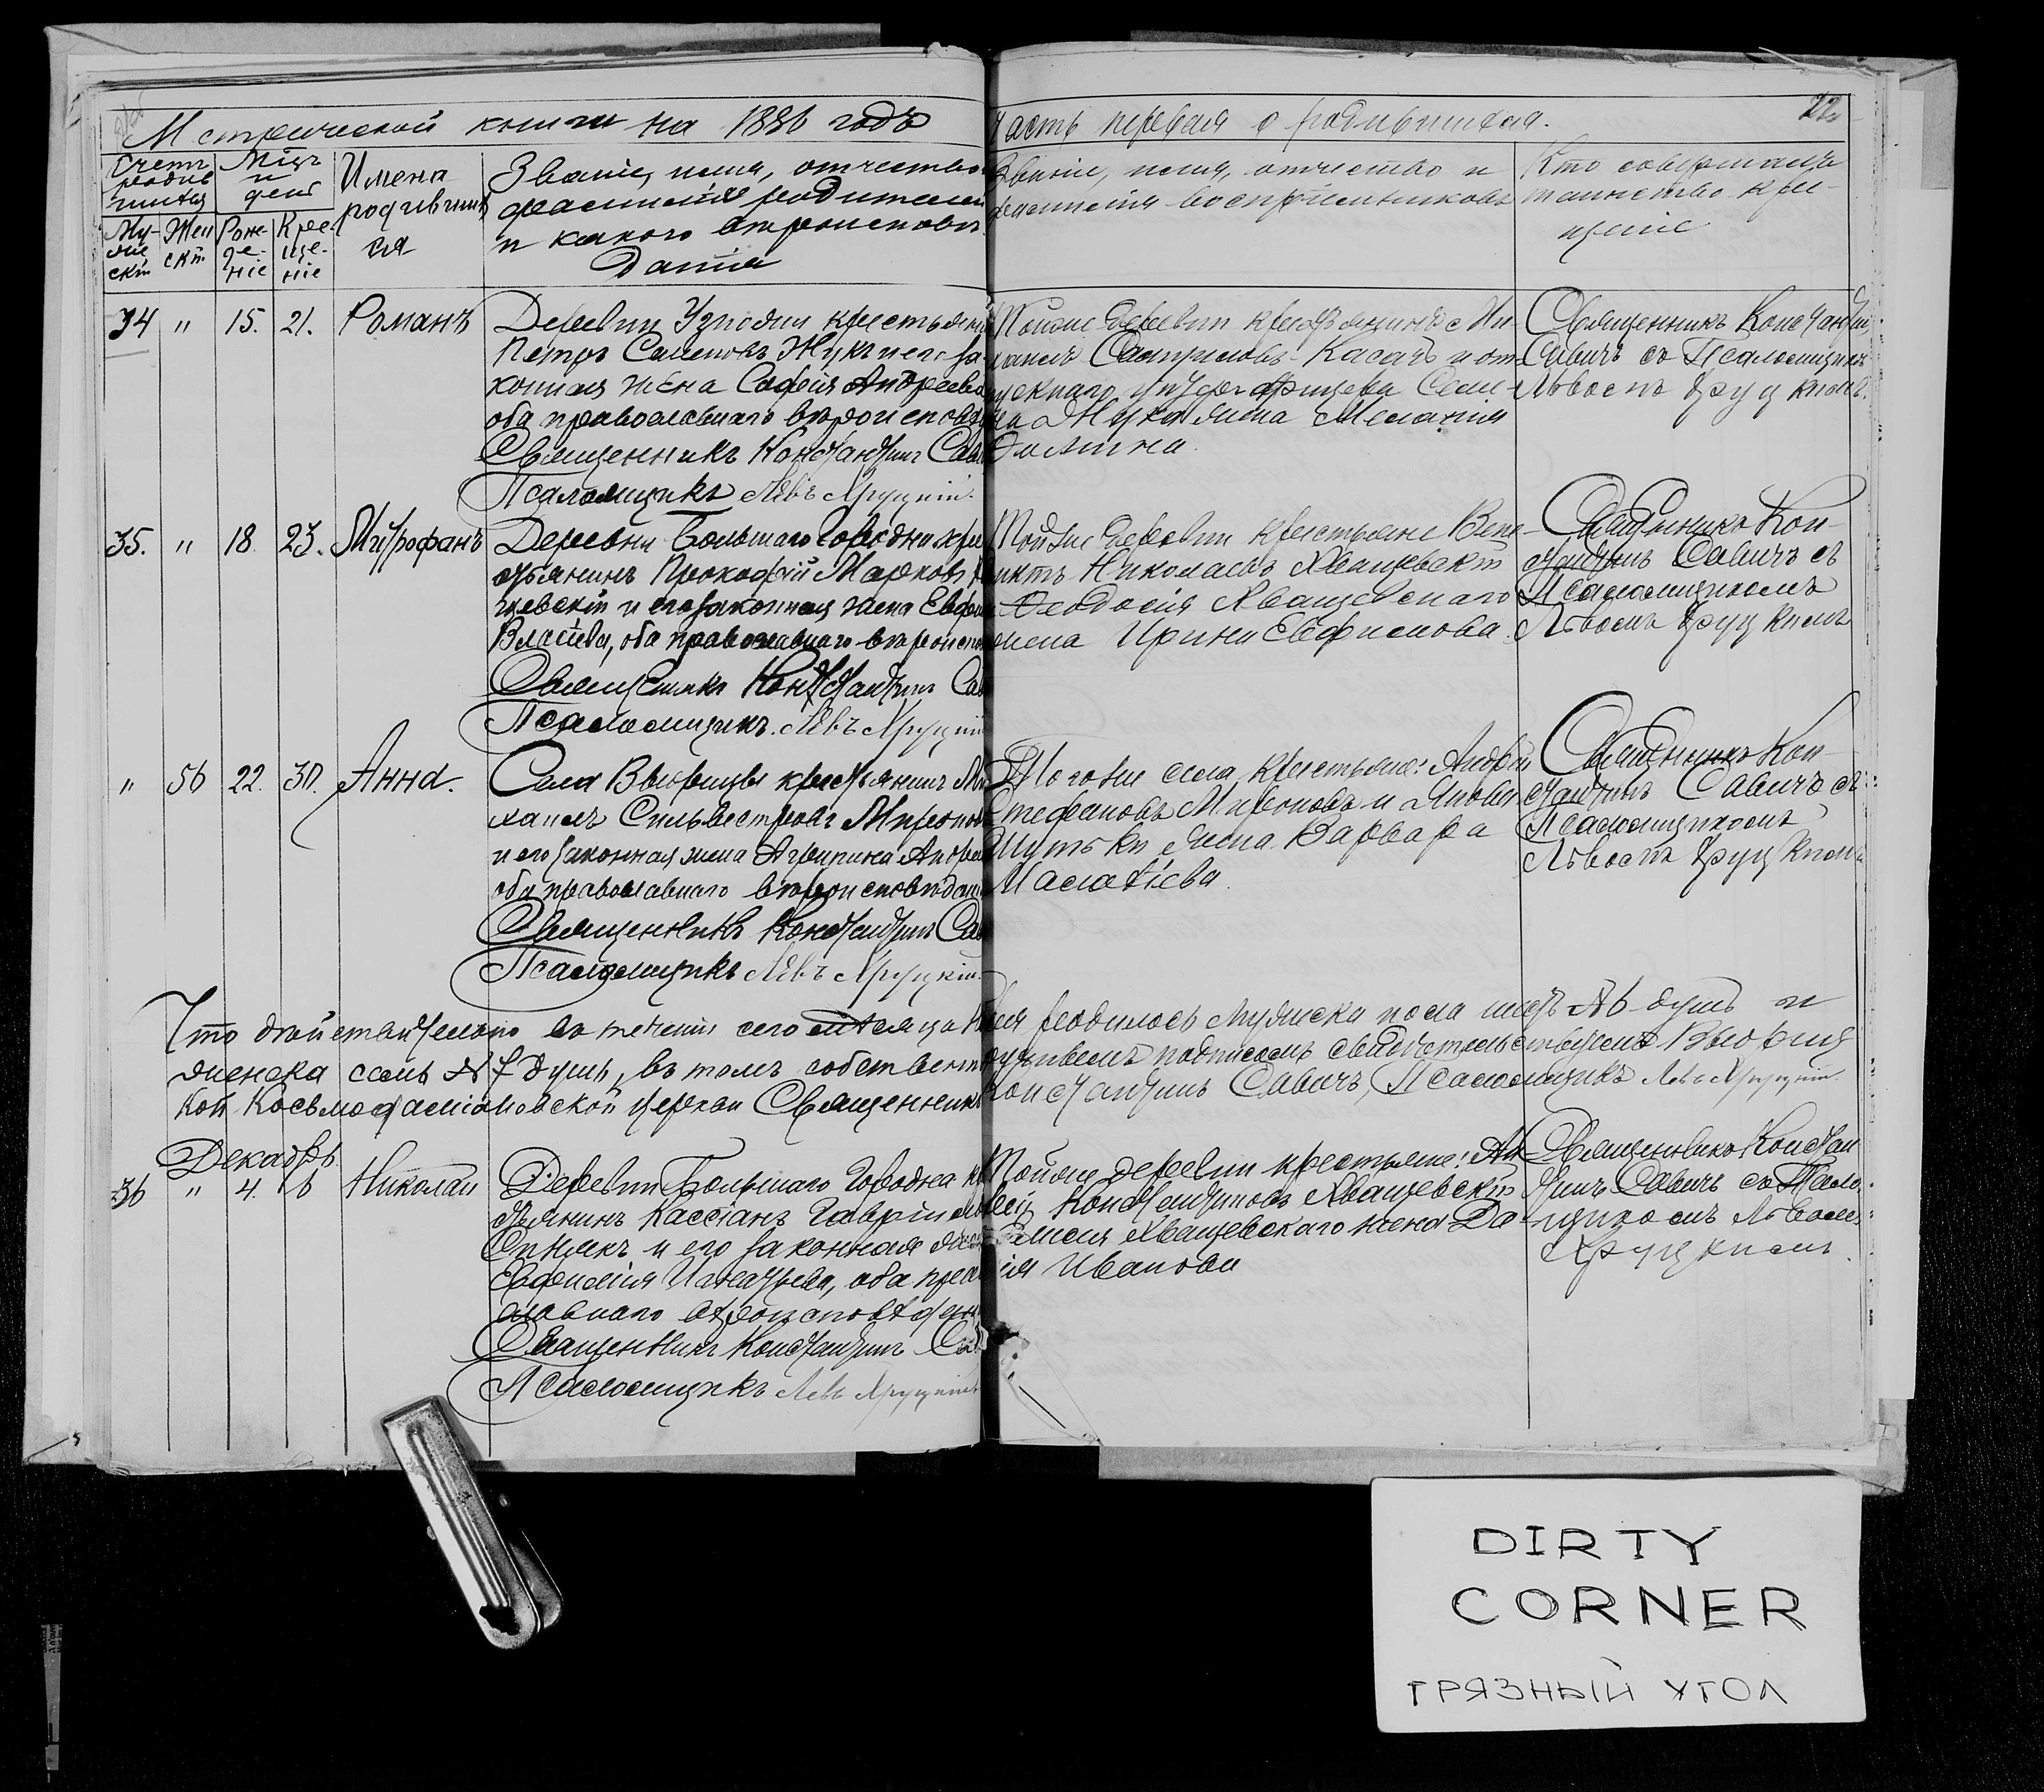 Метрической книги на 1886 годъ
Часть первая о родившихся.
22
Счетъ родив шихся
Мѣцъ и день
Имена родившихся
Званіе, имя, отчество
фамилія родителей
и какого вѣроисповѣ
данія
Званіе, имя, отчество и
фамилія воспріемниковъ
Кто совершалъ
таинство кре-
щенія
Му-жескій
Женскій
Рож-де-ніе
Кре-ще-ніе
34 " 15. 21. Романъ
Деревни крестьянинъ
Петръ Семеновъ Жукъ и его за-
конная жена Софія Андреева
оба православнаго вѣроисповѣд
Священникъ Константинъ Сав
Псаломщикъ Левъ Хруцкій.
Тойже деревни крестьянинъ Ми-
хаилъ Касачъ и от-
Семе-
на Жука жена Меланія
Священникъ Константинъ
Савичъ съ Псаломщикомъ
Львомъ Хруцкимъ.
35. " 18. 23. Митрофанъ
Деревни Большаго Городна кре
стьянинъ Прокофій Марковъ Хва
щевскій и его законная жена Евфи
Власіева, оба православнаго вѣроиспов
Священникъ Константинъ Сав
Псаломщикъ Левъ Хруцкій
Тойже деревни крестьяне Вене-
диктъ Николаевъ Хващевскій
и Ѳеодосія Хващевскаго
жена Ирина Евфимова.
Священникъ Кон-
стантинъ Савичъ съ
Псаломщикомъ
Львомъ Хруцкимъ
" 56 22. 30. Анна.
Села Вьюрицы крестьянинъ Ми
хаилъ Сильвестровъ Миронов
и его законная жена Агрипина Андре
оба православнаго вѣроисповѣдан
Священникъ Константинъ Сав
Псаломщикъ Левъ Хруцкій.
Тогоже села крестьяне: Андрей
Стефановъ Мироновъ и Якова
Шутьки жена Варвара
Священникъ Кон-
стантинъ Савичъ съ
Псаломщикомъ
Львомъ Хруцкимъ
Что дѣйствительно въ теченіи сего мѣсяца Ноября родилось мужеска пола шесть № 6 душъ и
женска семь № 7 душъ, въ томъ собственноручнымъ подписомъ свидѣтельствуемъ Вьюриц
кой Космодаміановской церкви Священникъ Константинъ Савичъ, Псаломщикъ Левъ Хруцкій.
Декабрь
36 " 4. 6 Николай
Деревни Большаго Городна кре
стьянинъ Кассіанъ Гавріилов
и его законная жена
Евфимія Игнатьева, оба право
славнаго вѣроисповѣдан
Священникъ Константинъ Сав
Псаломщикъ Левъ Хруцкій
Тойже деревни крестьяне: Але
ксѣй Константиновъ Хващевскій
Хващевскаго жена Да-
рія Иванова
Священникъ Констан
тинъ Савичъ съ Псало
мщикомъ Львомъ
Хруцкимъ.
DIRTY
CORNER
ГРЯЗНЫЙ УГОЛ